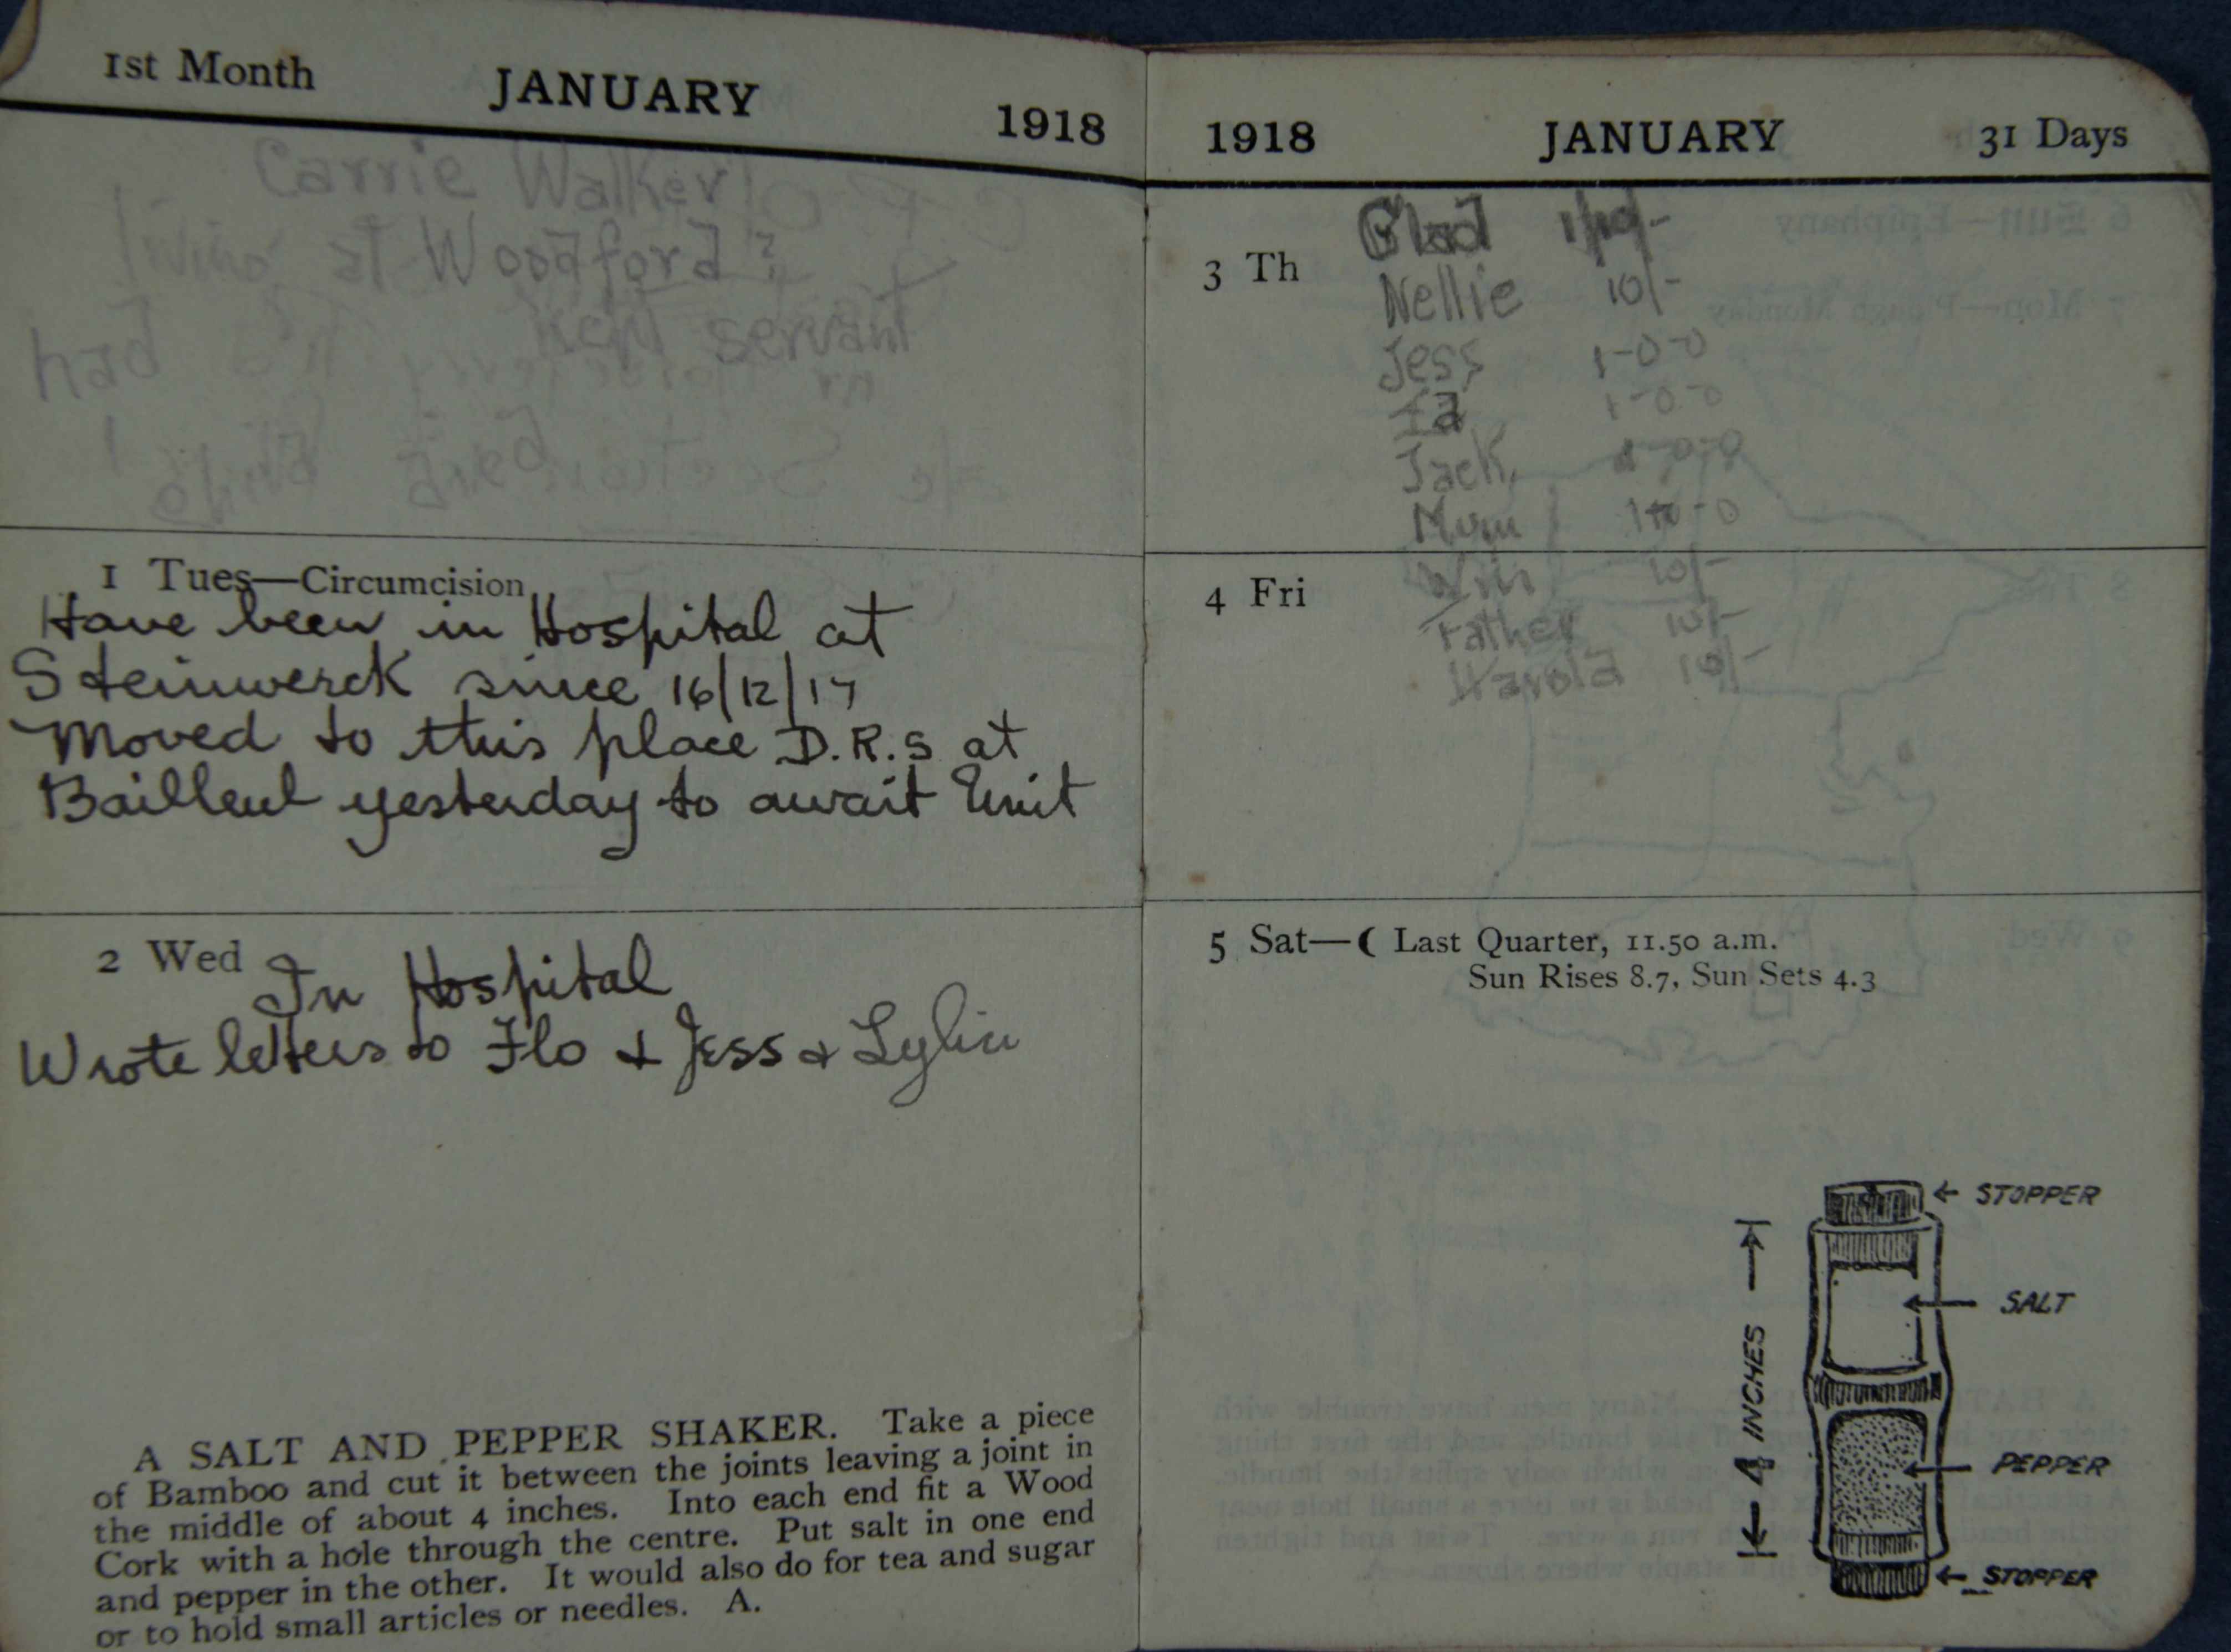 1st Month JANUARY 1918
Carrie Walker
living at Woodford?
Kept servant
had
child died
1 Tues—Circumcision
Have been in Hospital at
Steinwerck since 16/12/17
Moved to this place D.R.S at
Bailleul yesterday to await Unit
2 Wed
In Hospital
Wrote letters to Flo & Jess & Sylvia
A SALT AND PEPPER SHAKER. Take a piece
of Bamboo and cut it between the joints leaving a joint in
the middle of about 4 inches. Into each end fit a Wood
Cork with a hole through the centre. Put salt in one end
and pepper in the other. It would also do for tea and sugar
or to hold small articles or needles. A.
1918 JANUARY 31 Days
3 Th
Glad 1/10/-
Nellie 10/-
Jess 1-0-0
1-0-0
Jack
Mum
4 Fri
Win 10/-
Father 10/-
Harold 10/-
5 Sat—☾ Last Quarter, 11.50 a.m.
Sun Rises 8.7, Sun Sets 4.3
STOPPER
SALT
4 INCHES
PEPPER
STOPPER